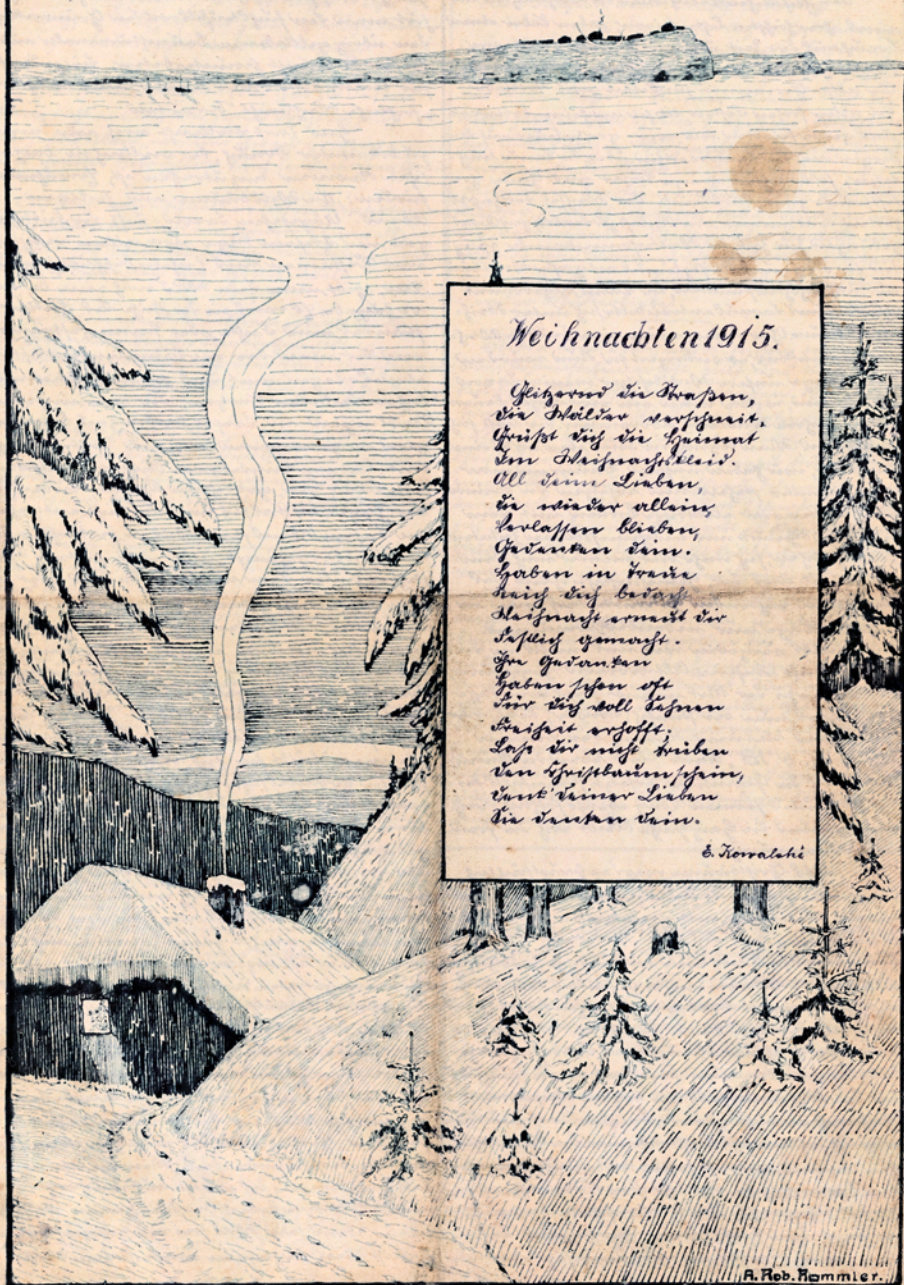 Weihnachten 1915.
Glitzernd die Straßen,
Die Wälder verschneit,
Grüßt dich die Heimat
Im Weihnachtskleid.
All deine Lieben,
Die wieder allein,
Verlassen blieben,
Gedenken dein.
Haben in Treue
Reich dich bedacht
Weihnacht erneut dir
Festlich gemacht.
Ihre Gedanken
Haben schon oft
Für dich voll Sehnen
Freiheit erhofft.
Laß dir nicht trüben
Den Christbaumschein,
Denk deiner Lieben
Sie denken dein.
E. Kowalski
A. Rob. Rommler.